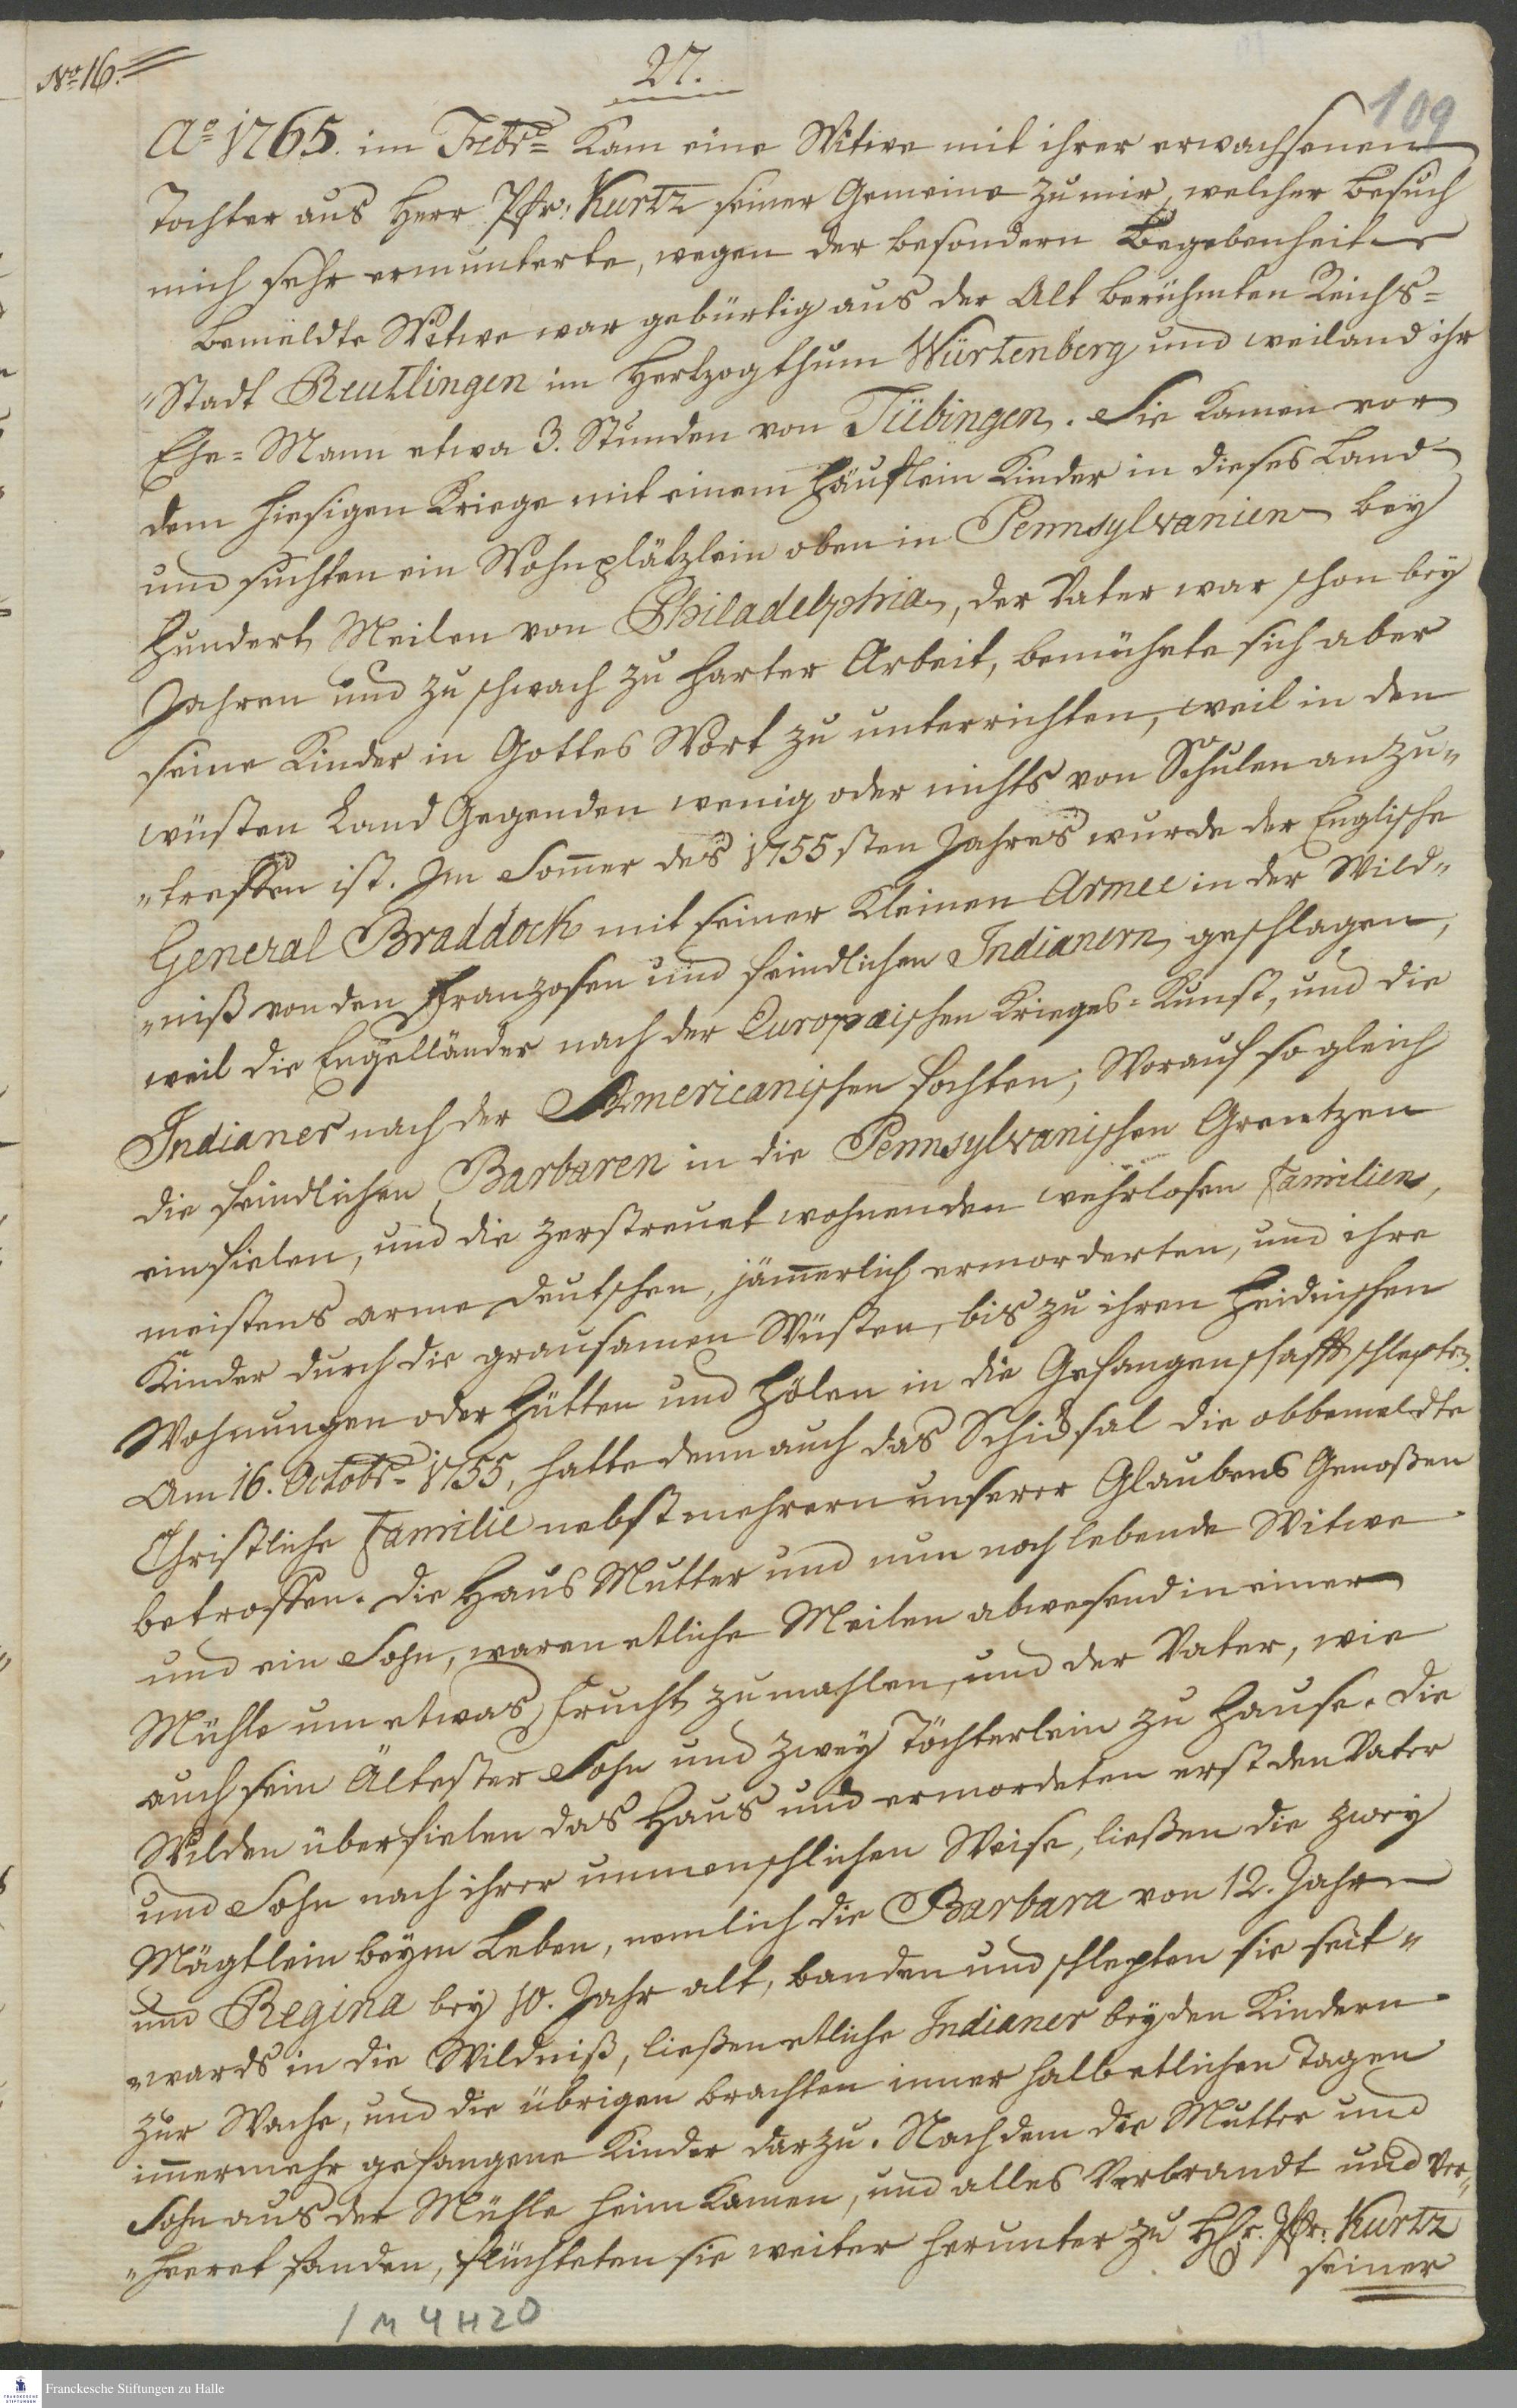 No 16.
27.
109
Ao 1765. im Febr: Kam eine Witwe mit ihrer erwachsenen
Tochter aus Herr Pfr: Kurtz seiner Gemeine zu mir, welcher Besuch
mich sehr ermunterte, wegen der besondern Begebenheit
bemeldte Witwe war gebürtig aus der Alt berühmten Reichs=
"Stadt Reutlingen im Hertzogthum Würtenberg und weiland ihr
Ehe=Mann etwa 3. Stunden von Tübingen. Sie Kamen vor
dem hiesigen Kriege mit einem Häuflein Kinder in dieses Land
und suchten ein Wohnplätzlein oben in Pennsylvanien bey
Hundert Meilen von Philadelphia, der Vater war schon bey
Jahren und zu schwach zu harter Arbeit, bemühete sich aber
seine Kinder in Gottes Wort zu unterrichten, weil in den
wüsten Land Gegenden wenig oder nichts von Schulen anzu"
"treffen ist. Im Som̅er des 1755sten Jahres wurde der Englische
General Braddock mit seiner Kleinen Armee in der Wild"
"niß von den Franzosen und feindlichen Indianern geschlagen,
weil die Engelländer nach der Europaischen Krieges=Kunst, und die
Indianer nach der Americanischen fochten; Worauf so gleich
die feindlichen Barbaren in die Pennsylvanischen Grentzen
einfielen, und die zerstreuet wohnenden wehrlosen Familien,
meistens arme Deutschen, jäm̅erlich ermorderten, und ihre
Kinder durch die grausamen Wüsten, bis zu ihren Heidnischen
Wohnungen oder Hütten und Hölen in die Gefangenschafft schlepten.
Am 16. Octobr: 1755, hatte denn auch das Schicksal die obbemeldte
Christliche Familie nebst mehrern unserer Glaubens Genoßen
betroffen. Die Haus Mutter und nun noch lebende Witwe
und ein Sohn, waren etliche Meilen abwesend in einer
Mühle um etwas Frucht zu mahlen, und der Vater, wie
auch sein Ältester Sohn und zwey Töchterlein zu Hause. Die
Wilden überfielen das Haus und ermordeten erst den Vater
und Sohn nach ihrer unmenschlichen Weise, ließen die zwey
Mägtlein beym Leben, nemlich die Barbara von 12. Jahren
und Regina bey 10. Jahr alt, banden und schlepten sie seit"
"wards in die Wildniß, ließen etliche Indianer bey den Kindern
zur Wache, und die übrigen brachten inner halb etlichen Tagen
im̅ermehr gefangene Kinder darzu. Nachdem die Mutter und
Sohn aus der Mühle heim Kamen, und alles Verbrandt und Ver"
"heeret fanden, flüchteten sie weiter herunter zu HEr. Pfr: Kurtz
seiner
1 M 4 H 20
Franckesche Stiftungen zu Halle